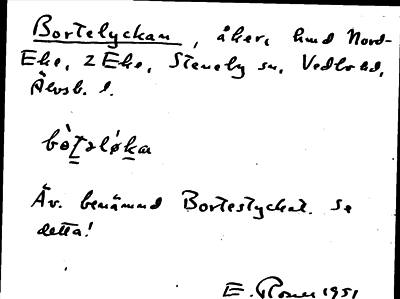 Bortelyckan, åker, hmd Nord-
Eke, 2 Eke, Steneby sn, Vedbo hd,
Älvsb. l.
bò̀ṯəløḵa
Äv. benämnd Bortestycket. Se
detta!
E. 1951